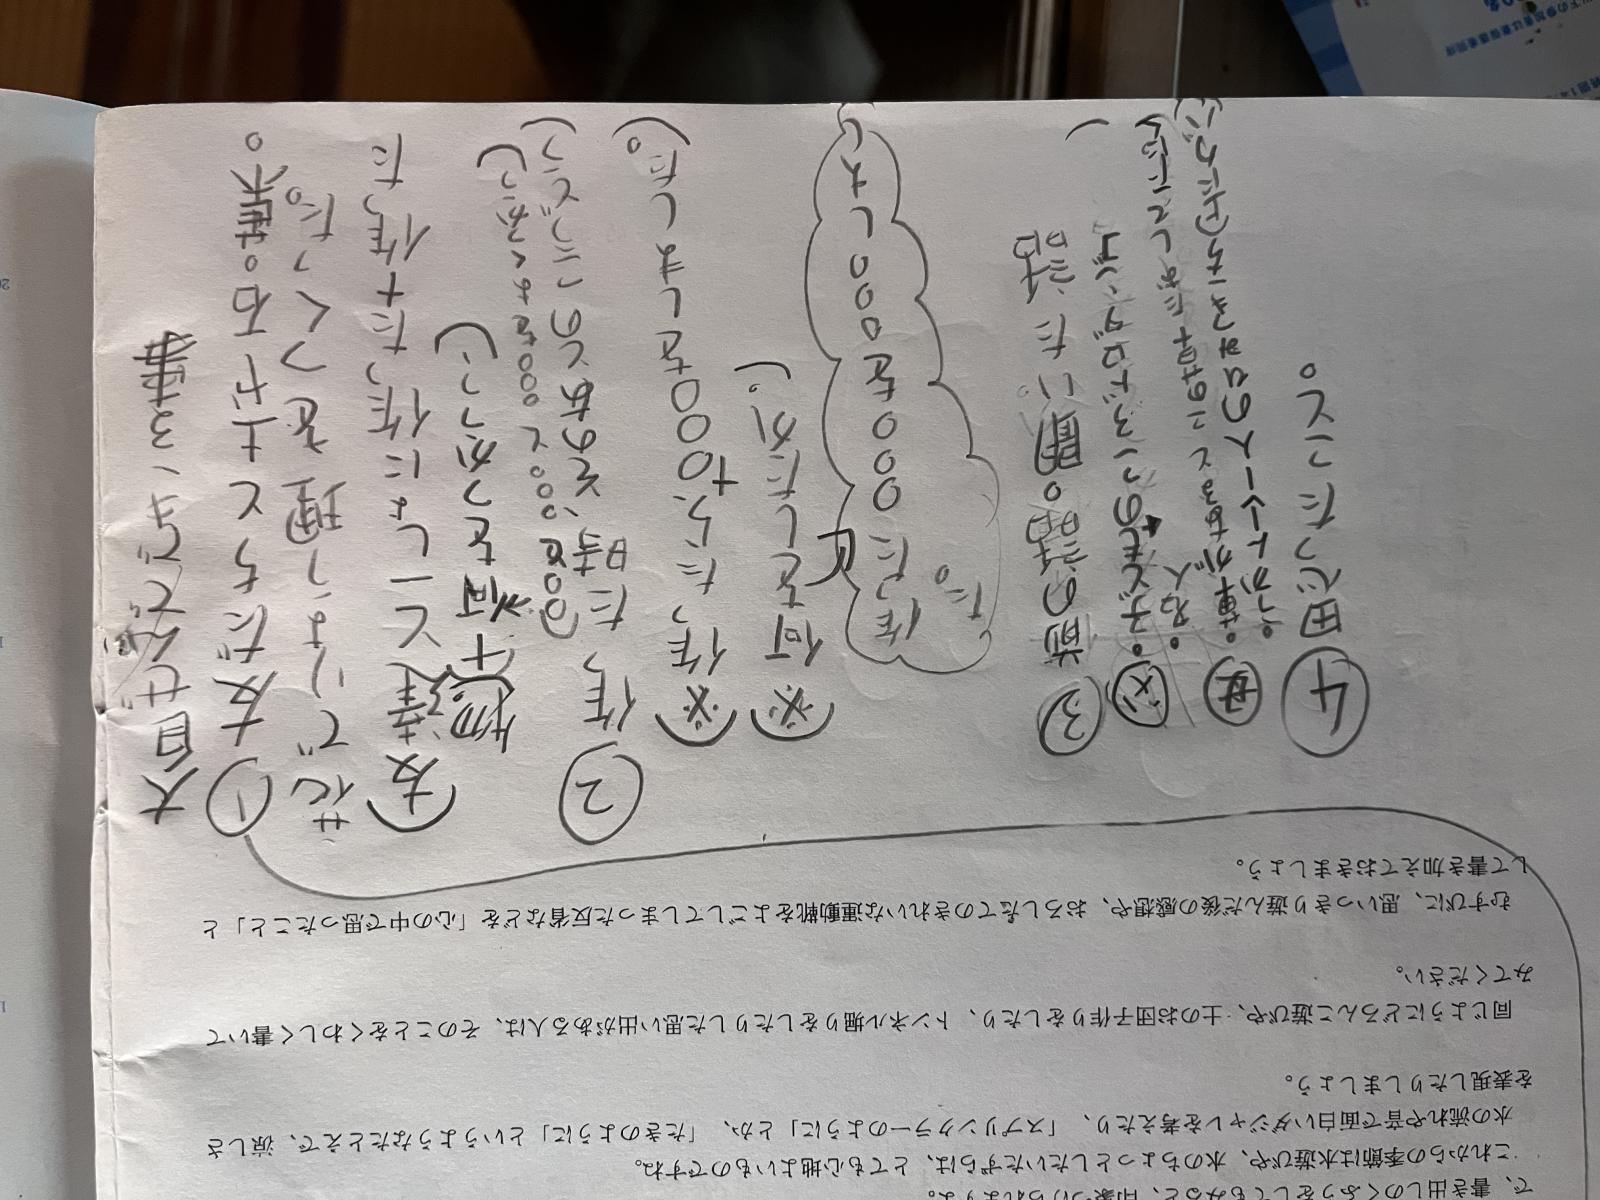 で、書き出しのくふうをしてもみると、印象づけられますよ。
これからの季節は水遊びや、水のちょっとしたいたずらは、とても心地よいものですね。
水の流れや音で面白いダジャレを考えたり、「スプリンクラーのように」とか、「たきのように」というようなたとえで、涼しさ
を表現したりしましょう。
同じようにどろんこ遊びや、土のお団子作りをしたり、トンネル掘りをしたりした思い出がある人は、そのことをくわしく書いて
みてください。
むすびに、思いっきり遊んだ後の感想や、おろしたてのきれいな運動靴をよごしてしまった反省などを「心の中で思ったこと」と
して書き加えておきましょう。
大自ぜんでできる事
① 友だちと土や石。葉。
花でりょう理をつくった。
(友達と一しょに作った+作った
物)(+何をつかうか)
(○○を○○と○○をよくつかう)
② 作った時、そのあとの
(※)作ったら、+○○を○○しました。)
(※)何をしたか。)
作った○○○を○○○し
た。
③ 前の話。聞いた話
父 ・子どものころ
・名人
母 ・草があるところ
④ 思ったこと。